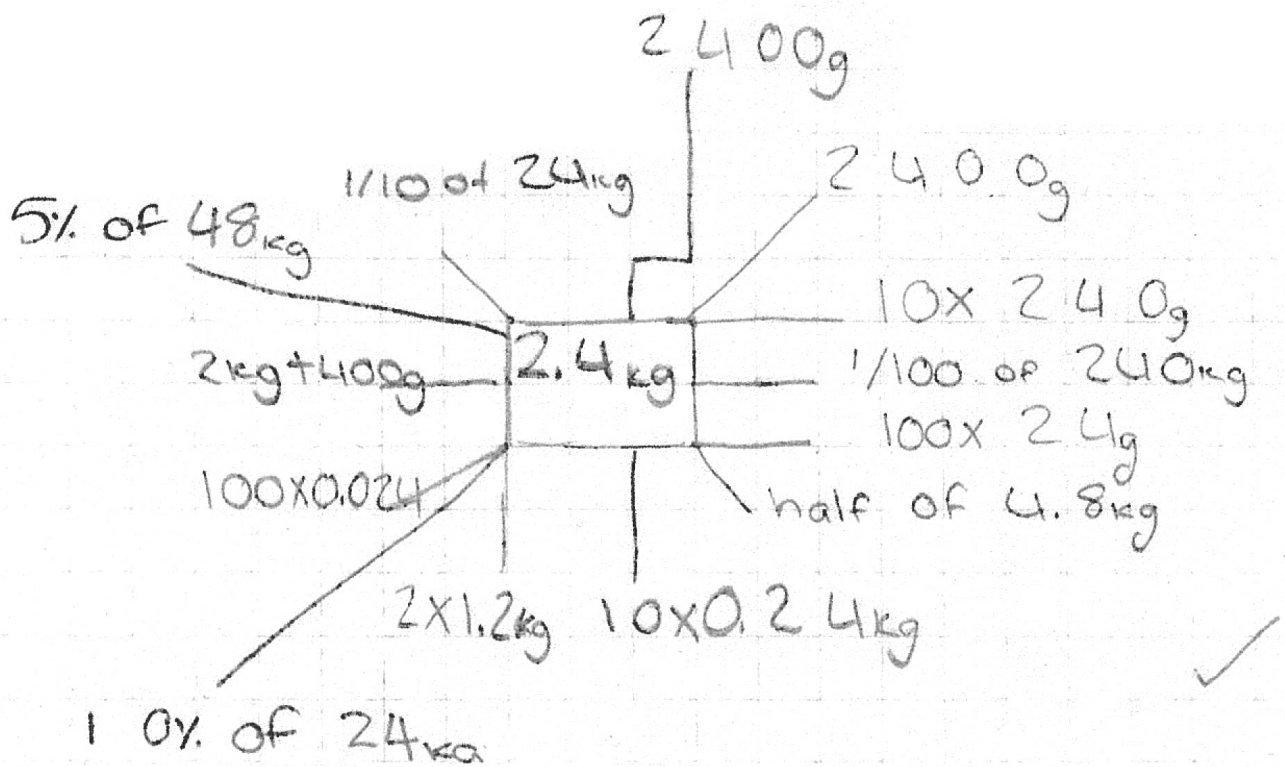 2400g
1/10 of 24kg
2 4 0.0g
5% of 48kg
10x 2 4 0g
2kg+400g
2.4kg
1/100 of 240kg
100x 2 4g
100x0.024
half of 4.8kg
2x1.2kg
10x0.2 4kg
1 0% of 24kg